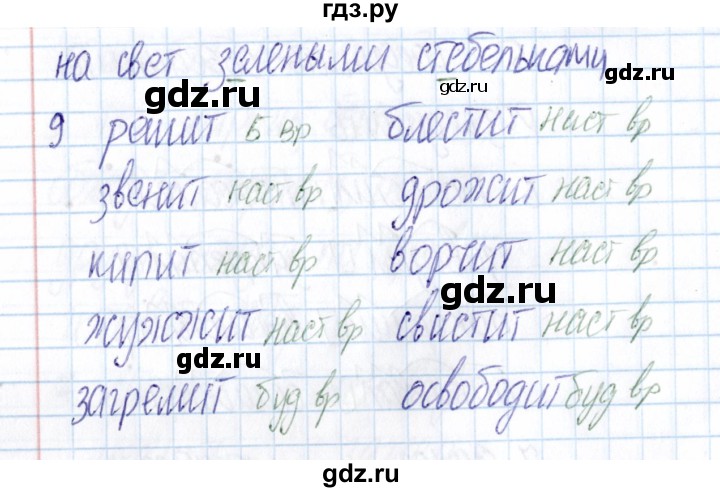 гдз.ру
на свет зелеными стебельками
gdz.ru
gdz.ru
9 решит Б вр блестит наст вр
gdz.ru
звенит наст вр дрожит наст вр
кипит наст вр ворчит наст вр
gdz.ru
жужжит наст вр свистит наст вр
gdz.ru
загремит буд вр освободит буд вр
gdz.ru